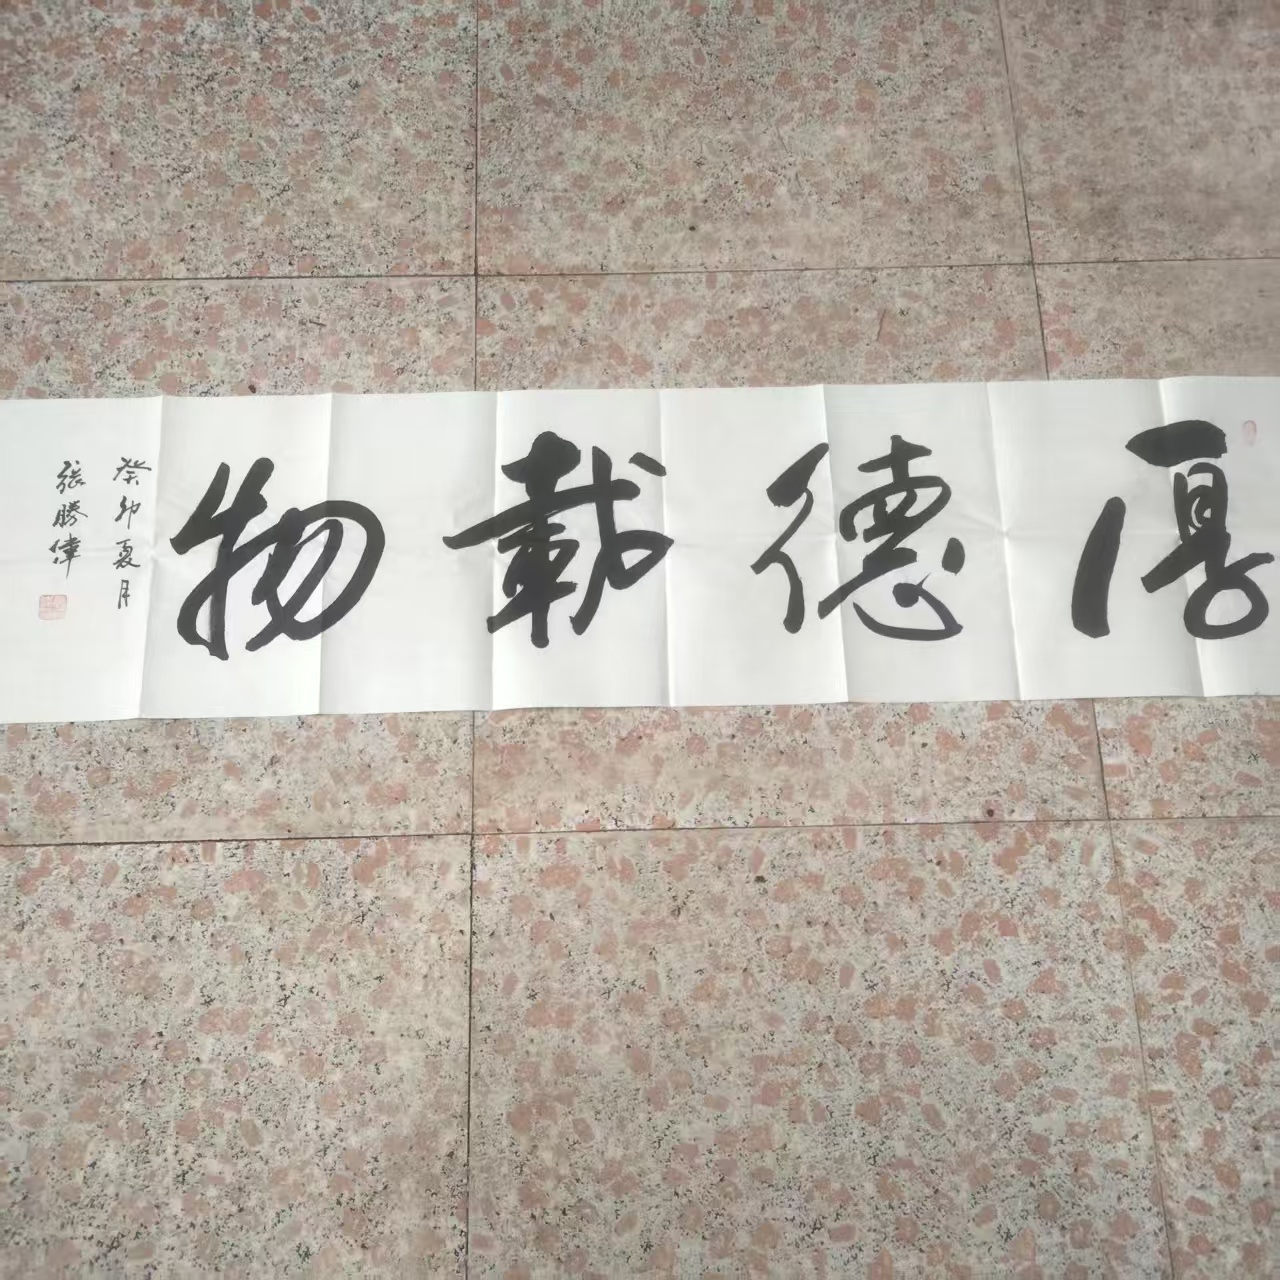 厚德載物
癸卯夏月
張勝偉